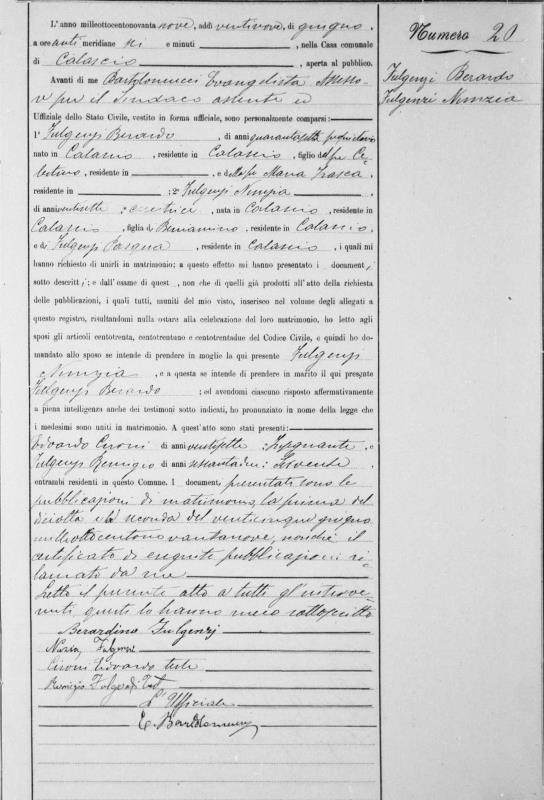 L'anno milleottocentonovanta nove, addì ventinove, di giugno,
a ore anti meridiane sei e minuti, nella Casa comunale
di Calascio, aperta al pubblico.
Avanti di me Bartolomucci Evangelista Assesso-
re per il Sindaco assente ed
Uffiziale dello Stato Civile, vestito in forma ufficiale, sono personalmente comparsi:
1° Fulgenzj Berardo, di anni quarantasette proprietario
nato in Calascio, residente in Calascio, figlio del fu Ce-
lestino, residente in, e della fu Maria Frasca
residente in; 2° Fulgenzj Nunzia,
di anni ventisette, nata in Calascio, residente in
Calascio, figlia di Beniamino, residente in Calascio,
e di Fulgenzj Pasqua, residente in Calascio, i quali mi
hanno richiesto di unirli in matrimonio; a questo effetto mi hanno presentato i document i
sotto descritt i; e dall'esame di quest, non che di quelli già prodotti all'atto della richiesta
delle pubblicazioni, i quali tutti, muniti del mio visto, inserisco nel volume degli allegati a
questo registro, risultandomi nulla ostare alla celebrazione del loro matrimonio, ho letto agli
sposi gli articoli centotrenta, centotrentuno e centotrentadue del Codice Civile, e quindi ho do-
mandato allo sposo se intende di prendere in moglie la qui presente Fulgenzj
Nunzia, e a questa se intende di prendere in marito il qui presente
Fulgenzj Berardo; ed avendomi ciascuno risposto affermativamente
a piena intelligenza anche dei testimoni sotto indicati, ho pronunziato in nome della legge che
i medesimi sono uniti in matrimonio. A quest'atto sono stati presenti:
Edoardo Cironi di anni ventisette Insegnante, e
Fulgenzj Remigio di anni sessantadue,
entrambi residenti in questo Comune. I document presentati sono le
pubblicazioni di matrimonio, la prima del
diciotto e la seconda del venticinque giugno
milleottocentonovantanove, nonché il
certificato di eseguite pubblicazioni ri-
lasciato da me
Letto il presente atto a tutti gl'interve-
nuti, questi lo hanno meco sottoscritto
Berardino Fulgenzj
Nunzia Fulgenzi
Cironi Edoardo teste
Remigio Fulgenzj Test
L'Ufficiale
E. Bartolomucci
Numero 20
Fulgenzi Berardo
Fulgenzi Nunzia